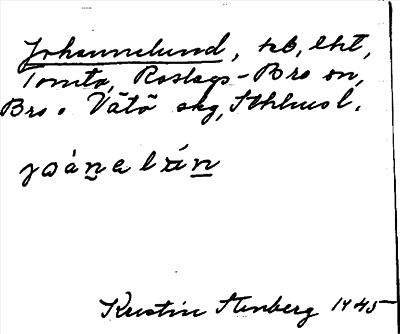 Johannelund, tb, lht,
Tomta, Roslags-Bro sn,
Bro o Vätö skg, Sthlmsl.
Kerstin Stenberg 1945